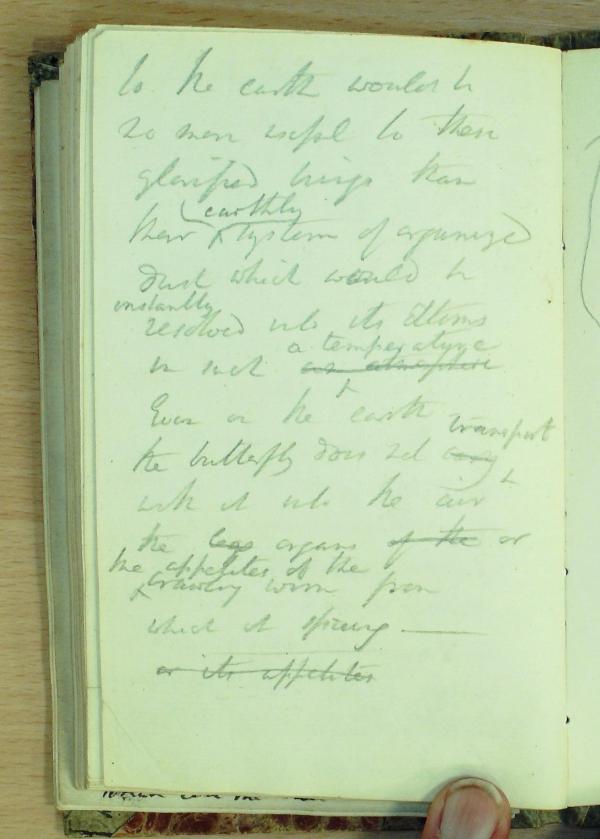 to the earth would be
no more useful to these
glorified beings than
their earthly system of organized
dust which would be
instantly
resolved into its atoms
a temperature
in such an atmosphere
Even on the earth transport
the butterfly does not carry
with it into the air
the legs organs of the or
the appetites of the
crawling worm from
which it springs —
or its appetites